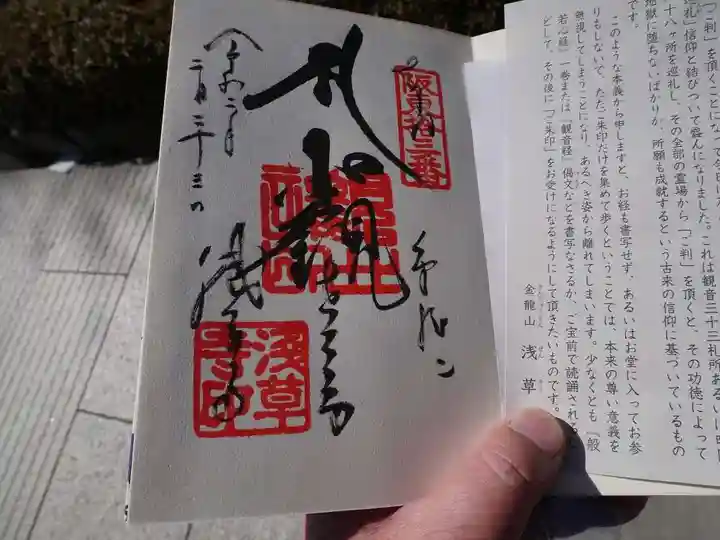 「ご判」を頂くことになって
巡礼」信仰と結びついて盛んになりました。これは観音三十三札所あるいは
十八ヶ所を巡礼し、その全部の霊場から「ご判」を頂くと、その功徳によって
地獄に堕ちないばかりか、所願も成就するという古来の信仰に基づいているもの
です。
このような本義から申しますと、お経も書写せず、あるいはお堂に入ってお参
りもしないで、ただご朱印だけを集めて歩くということでは、本来の尊い意義を
無視してしまうことになり、あるべき姿から離れてしまいます。少なくとも『般
若心経』一巻または『観音経』偈文などを書写なさるか、ご宝前で読誦される
どして、その後に「ご朱印」をお受けになるようにして頂きたいものです。
金龍山 浅草
坂東拾三番
奉拝
浅草寺
浅草寺印
令和二年
二月二十三日